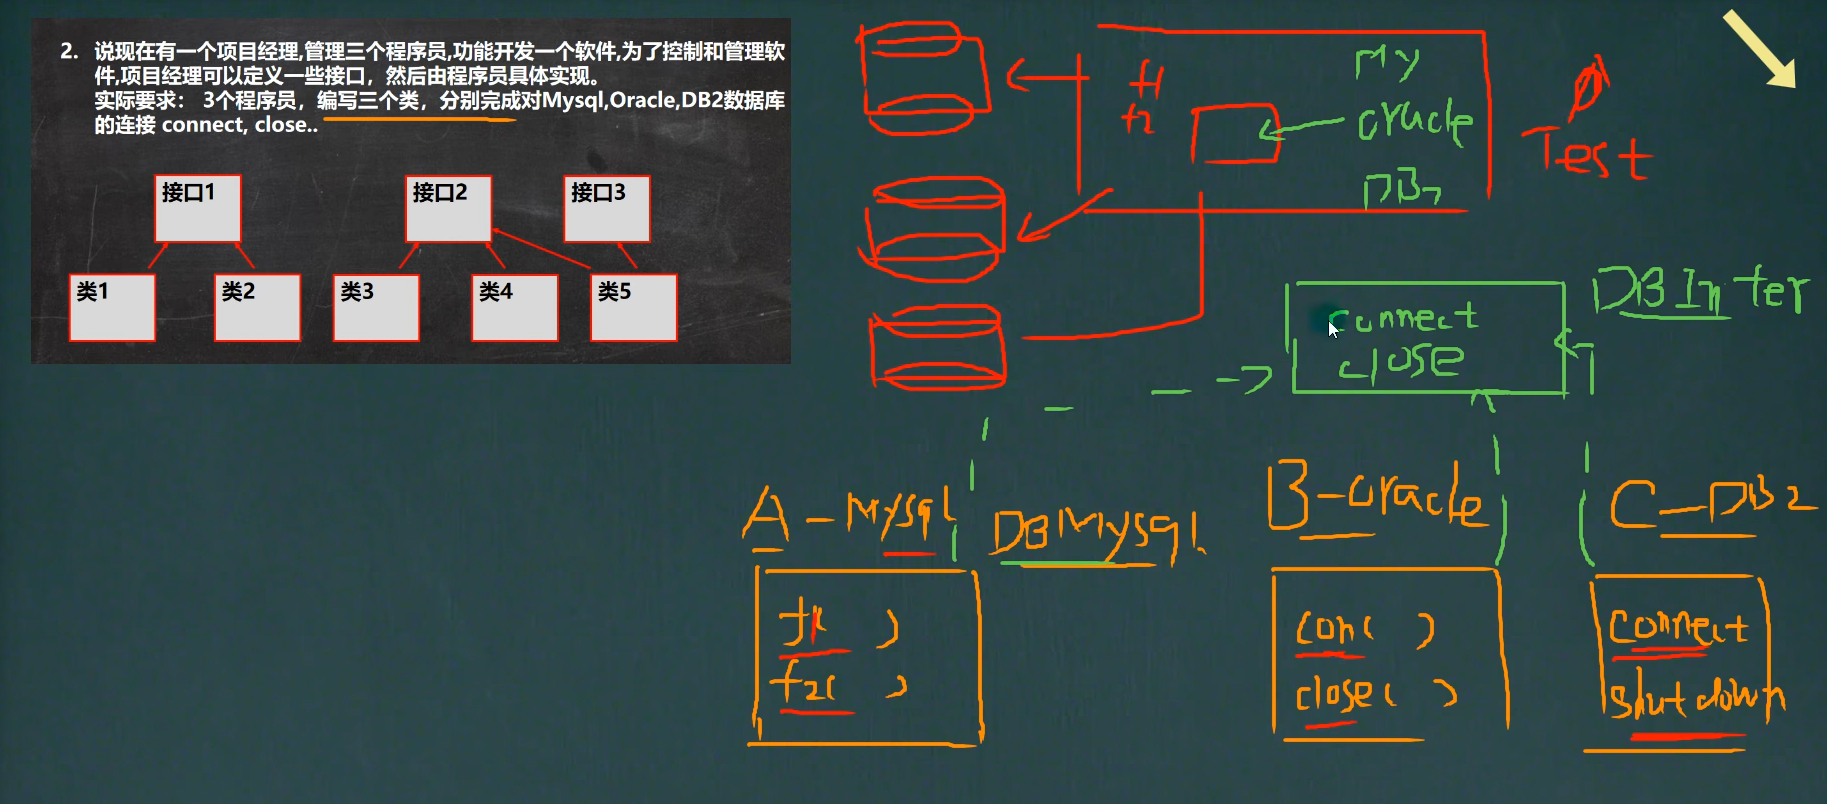 2. 说现在有一个项目经理,管理三个程序员,功能开发一个软件,为了控制和管理软
件,项目经理可以定义一些接口，然后由程序员具体实现。
实际要求： 3个程序员，编写三个类，分别完成对Mysql,Oracle,DB2数据库
的连接 connect, close..
接口1
接口2
接口3
类1
类2
类3
类4
类5
f1
f2
My
oracle
DB2
Test
DBInter
connect
close
A-Mysql
DBMysql
B-oracle
C-DB2
f1( )
f2( )
con( )
close( )
connect
shutdown